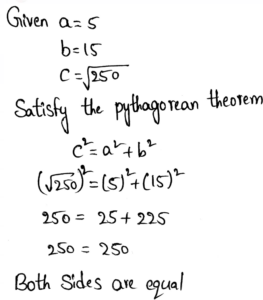 Given a=5
b=15
c=√250
Satisfy the pythagorean theorem
c²=a²+b²
(√250)²=(5)²+(15)²
250 = 25+225
250 = 250
Both Sides are equal